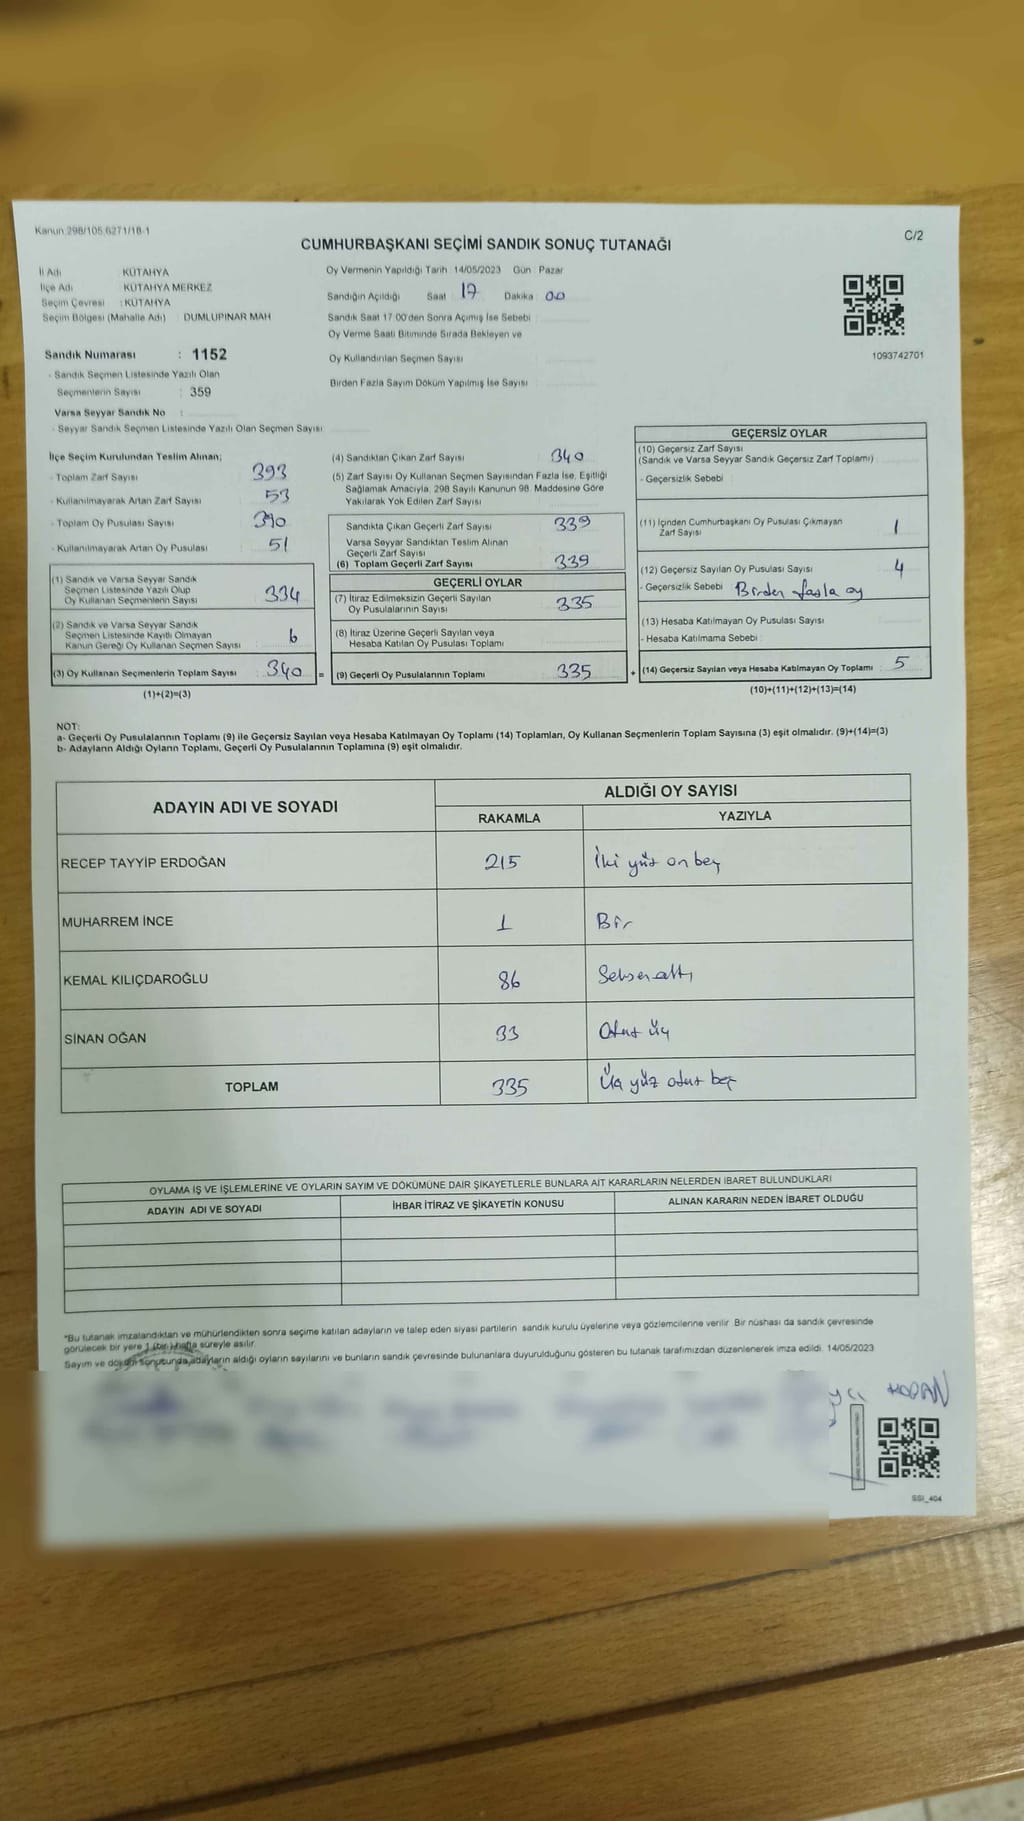 Kanun 298/105,6271/18-1
CUMHURBAŞKANI SEÇİMİ SANDIK SONUÇ TUTANAĞI
C/2
İl Adı KÜTAHYA
İlçe Adı KÜTAHYA MERKEZ
Seçim Çevresi : KÜTAHYA
Seçim Bölgesi (Mahalle Adı) : DUMLUPINAR MAH
Sandık Numarası : 1152
- Sandık Seçmen Listesinde Yazılı Olan
Seçmenlerin Sayısı : 359
Varsa Seyyar Sandık No :
- Seyyar Sandık Seçmen Listesinde Yazılı Olan Seçmen Sayısı
Oy Vermenin Yapıldığı Tarih 14/05/2023 Gün Pazar
Sandığın Açıldığı Saat 17 Dakika 00
Sandık Saat 17 00'den Sonra Açımış İse Sebebi
Oy Verme Saati Bitiminde Sırada Bekleyen ve
Oy Kullandırılan Seçmen Sayısı
Birden Fazla Sayım Döküm Yapılmış İse Sayısı
1093742701
İlçe Seçim Kurulundan Teslim Alınan;
- Toplam Zarf Sayısı 393
- Kullanılmayarak Artan Zarf Sayısı 53
- Toplam Oy Pusulası Sayısı 390
- Kullanılmayarak Artan Oy Pusulası 51
(1) Sandık ve Varsa Seyyar Sandık
Seçmen Listesinde Yazılı Olup
Oy Kullanan Seçmenlerin Sayısı 334
(2) Sandık ve Varsa Seyyar Sandık
Seçmen Listesinde Kayıtlı Olmayan
Kanun Gereği Oy Kullanan Seçmen Sayısı 6
(3) Oy Kullanan Seçmenlerin Toplam Sayısı : 340 =
(1)+(2)=(3)
(4) Sandıktan Çıkan Zarf Sayısı 340
(5) Zarf Sayısı Oy Kullanan Seçmen Sayısından Fazla İse, Eşitliği
Sağlamak Amacıyla, 298 Sayılı Kanunun 98. Maddesine Göre
Yakılarak Yok Edilen Zarf Sayısı
Sandıkta Çıkan Geçerli Zarf Sayısı 339
Varsa Seyyar Sandıktan Teslim Alınan
Geçerli Zarf Sayısı
(6) Toplam Geçerli Zarf Sayısı 339
GEÇERLİ OYLAR
(7) İtiraz Edilmeksizin Geçerli Sayılan
Oy Pusulalarının Sayısı 335
(8) İtiraz Üzerine Geçerli Sayılan veya
Hesaba Katılan Oy Pusulası Toplamı
(9) Geçerli Oy Pusulalarının Toplamı 335 +
GEÇERSİZ OYLAR
(10) Geçersiz Zarf Sayısı
(Sandık ve Varsa Seyyar Sandık Geçersiz Zarf Toplamı)
- Geçersizlik Sebebi
(11) İçinden Cumhurbaşkanı Oy Pusulası Çıkmayan
Zarf Sayısı 1
(12) Geçersiz Sayılan Oy Pusulası Sayısı 4
- Geçersizlik Sebebi Birden fazla oy
(13) Hesaba Katılmayan Oy Pusulası Sayısı
- Hesaba Katılmama Sebebi
(14) Geçersiz Sayılan veya Hesaba Katılmayan Oy Toplamı : 5
(10)+(11)+(12)+(13)=(14)
NOT:
a- Geçerli Oy Pusulalarının Toplamı (9) ile Geçersiz Sayılan veya Hesaba Katılmayan Oy Toplamı (14) Toplamları, Oy Kullanan Seçmenlerin Toplam Sayısına (3) eşit olmalıdır. (9)+(14)=(3)
b- Adayların Aldığı Oyların Toplamı, Geçerli Oy Pusulalarının Toplamına (9) eşit olmalıdır.
ADAYIN ADI VE SOYADI ALDIĞI OY SAYISI
RAKAMLA YAZIYLA
RECEP TAYYİP ERDOĞAN 215 İki yüz on beş
MUHARREM İNCE 1 Bir
KEMAL KILIÇDAROĞLU 86 Seksen altı
SİNAN OĞAN 33 Otuz üç
TOPLAM 335 Üç yüz otuz beş
OYLAMA İŞ VE İŞLEMLERİNE VE OYLARIN SAYIM VE DÖKÜMÜNE DAİR ŞİKAYETLERLE BUNLARA AİT KARARLARIN NELERDEN İBARET BULUNDUKLARI
ADAYIN ADI VE SOYADI İHBAR İTİRAZ VE ŞİKAYETİN KONUSU ALINAN KARARIN NEDEN İBARET OLDUĞU
*Bu tutanak imzalandıktan ve mühürlendikten sonra seçime katılan adayların ve talep eden siyasi partilerin sandık kurulu üyelerine veya gözlemcilerine verilir. Bir nüshası da sandık çevresinde
görülecek bir yere 1 (bir) hafta süreyle asılır.
Sayım ve döküm sonucunda,adayların aldığı oyların sayılarını ve bunların sandık çevresinde bulunanlara duyurulduğunu gösteren bu tutanak tarafımızdan düzenlenerek imza edildi. 14/05/2023
SSI_404